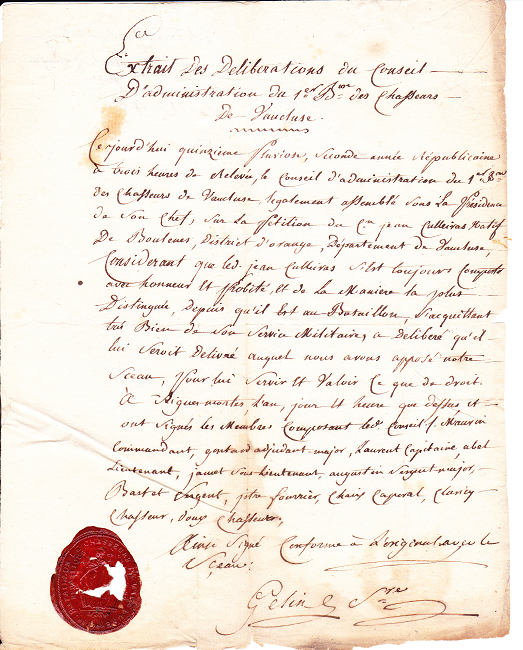 Extrait Des Deliberations du Conseil
D'administration du 1er B.on des Chasseurs
De Vaucluse.
Cejourd'hui quinzieme pluviose, seconde année Républicaine
a trois heures de Relevée, le Conseil d'administration du 1er B.on
des Chasseurs de Vaucluse, legalement assemblé sous La Présidence
de son Chef, sur La Pétition du C.en jean Culleiras Natif
De Boulenes, District d'orange, Département de Vaucluse,
Considerant que led. jean Culleiras s'Est toujours Comporté
avec honneur Et Probité, et de la Maniere la plus
Distinguée, Depuis qu'il Est au Bataillon, s'acquittant
très Bien de son Service Militaire, a Deliberé qu'il
lui seroit Delivré auquel nous avons apposé notre
Sceau, Pour lui Servir Et Valoir Ce que de droit.
A Aiguesmortes, L'an, jour Et heure que dessus et
ont signés les Membres Composant led. Conseil f. Maurin
Commandant, gontard adjudant-major, Laurent Capitaine, abel
Lieutenant, jaumet Sous Lieutenant, augustin Sergent-major,
Bastet Sergent, fourrier, Chaix Caporal, Clancy
Chasseur, Doux Chasseur,
Ainsi Signé Conforme à L'original avec le
Sceau.
Gelin S.re